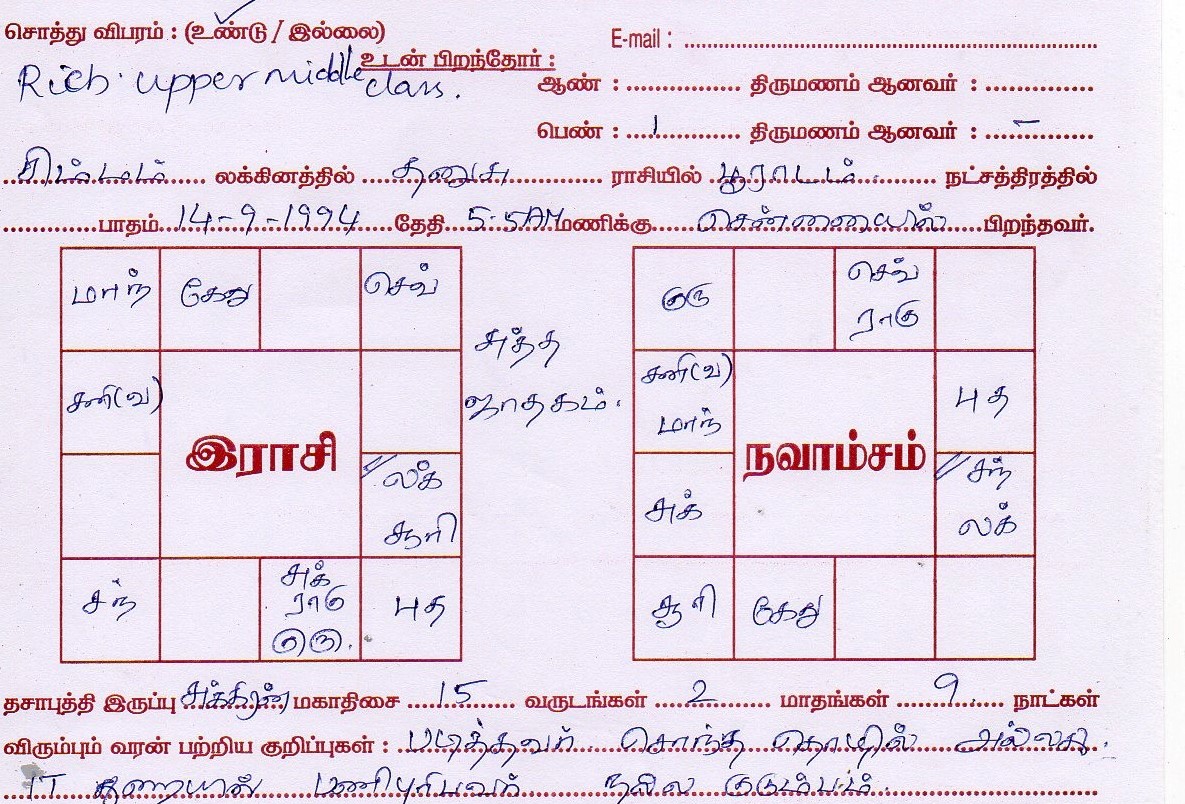 சொத்து விபரம் : (உண்டு / இல்லை)
E-mail :
Rich upper middle class.
உடன் பிறந்தோர் :
ஆண் : திருமணம் ஆனவர் :
பெண் : 1 திருமணம் ஆனவர் : –
சிம்மம் லக்கினத்தில் தனுசு ராசியில் பூராடம் நட்சத்திரத்தில்
பாதம் 14-9-1994 தேதி 5.5AM மணிக்கு சென்னையில் பிறந்தவர்.
மாந் கேது செவ்
சனி(வ)
இராசி
லக் சூரி
சந் சுக் ராகு குரு. புத
சுத்த
ஜாதகம்.
குரு செவ் ராகு
சனி(வ) மாந் புத
நவாம்சம்
சுக் சந் லக்
சூரி கேது
தசாபுத்தி இருப்பு சுக்கிரன் மகாதிசை 15 வருடங்கள் 2 மாதங்கள் 9 நாட்கள்
விரும்பும் வரன் பற்றிய குறிப்புகள் : படித்தவர் சொந்த தொழில் அல்லது
IT துறையில் பணிபுரிபவர் நல்ல குடும்பம்.